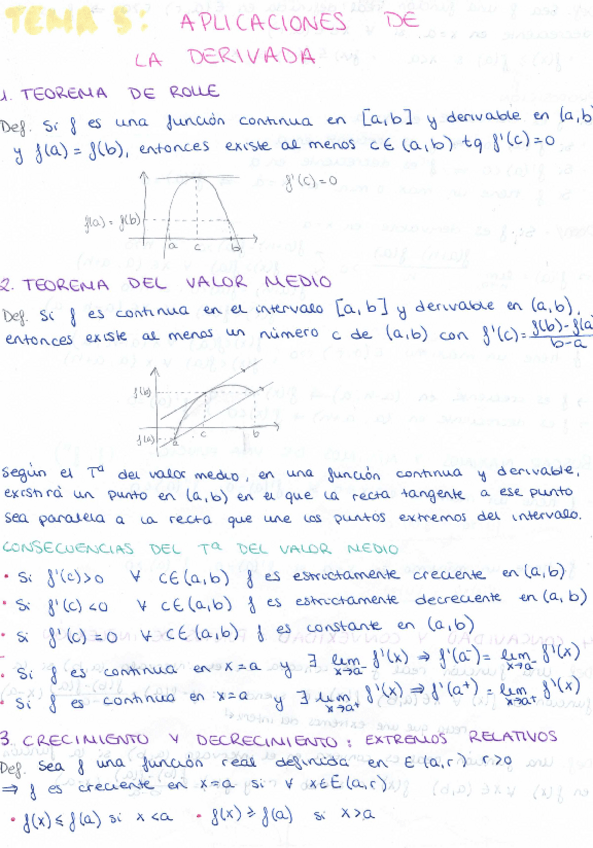 TEMA 5: APLICACIONES DE
LA DERIVADA
1. TEOREMA DE ROLLE
Def. Si f es una función continua en [a,b] y derivable en (a,b)
y f(a) = f(b), entonces existe al menos c∈(a,b) tq f'(c)=0
f'(c)=0
f(a) = f(b)
a c b
2. TEOREMA DEL VALOR MEDIO
Def. Si f es continua en el intervalo [a,b] y derivable en (a,b),
entonces existe al menos un número c de (a,b) con f'(c)=f(b)-f(a)/b-a
f(b)
f(a)
a c b
Según el Tª del valor medio, en una función continua y derivable,
existirá un punto en (a,b) en el que la recta tangente a ese punto
sea paralela a la recta que une los puntos extremos del intervalo.
CONSECUENCIAS DEL Tª DEL VALOR MEDIO
• Si f'(c)>0 ∀ c∈(a,b) f es estrictamente creciente en (a,b)
• Si f'(c)<0 ∀ c∈(a,b) f es estrictamente decreciente en (a,b)
• Si f'(c)=0 ∀ c∈(a,b) f es constante en (a,b)
• Si f es continua en x=a y ∃ lim x→a⁻ f'(x) ⇒ f'(a⁻) = lim x→a⁻ f'(x)
• Si f es continua en x=a y ∃ lim x→a⁺ f'(x) ⇒ f'(a⁺) = lim x→a⁺ f'(x)
3. CRECIMIENTO Y DECRECIMIENTO: EXTREMOS RELATIVOS
Def. Sea f una función real definida en E(a,r) r>0
⇒ f es creciente en x=a si ∀ x∈E(a,r)
• f(x) ≤ f(a) si x<a • f(x) ≥ f(a) si x>a